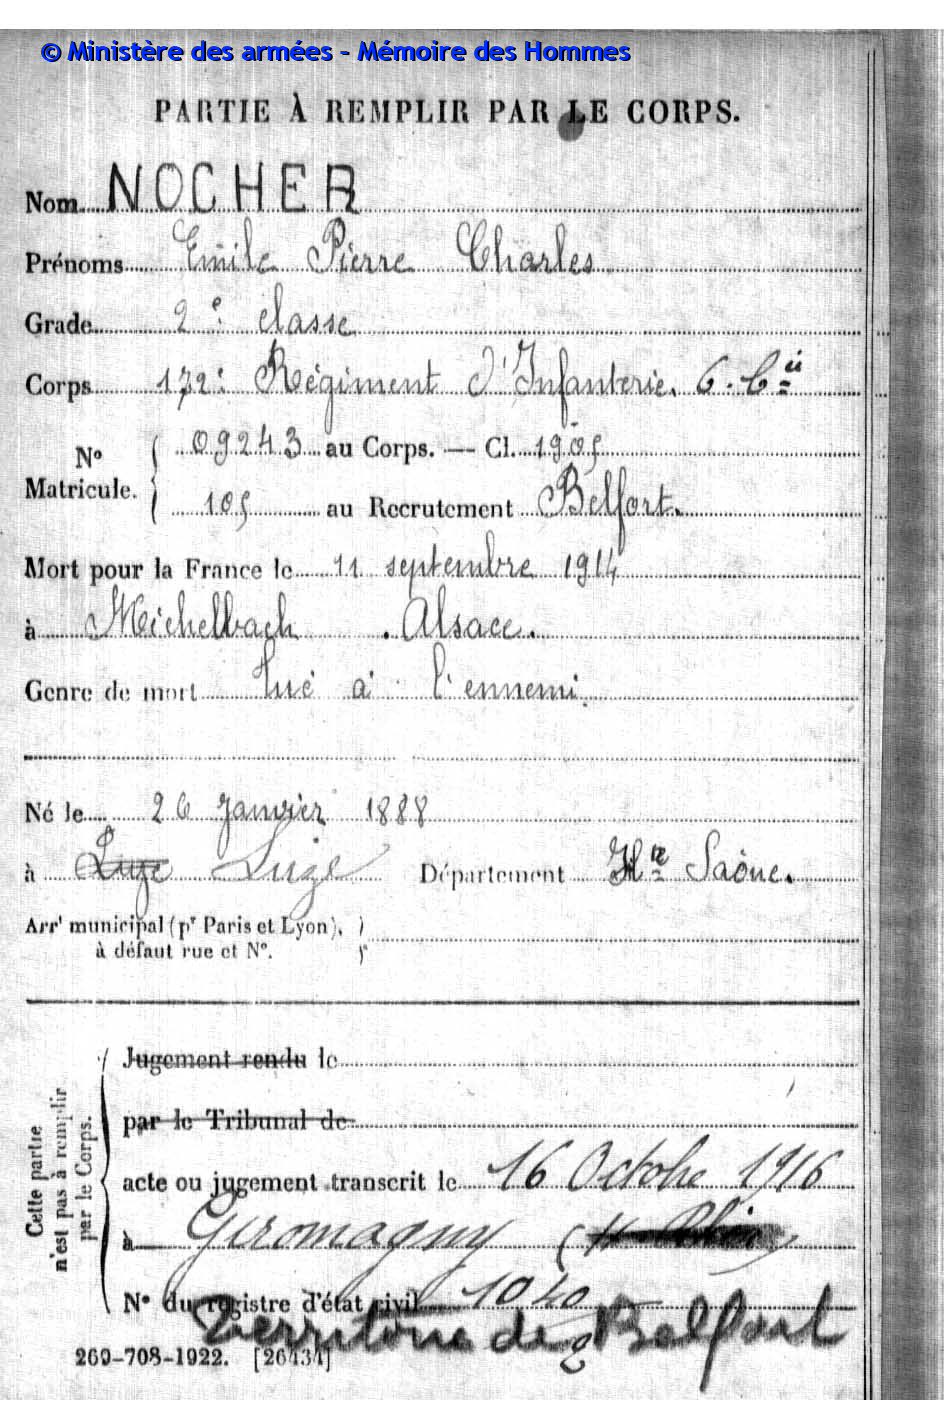 © Ministère des armées - Mémoire des Hommes
PARTIE À REMPLIR PAR LE CORPS.
Nom NOCHER
Prénoms Emile Pierre Charles
Grade 2e classe
Corps 172e Régiment d'Infanterie. 6. Cie
No Matricule. 09243 au Corps. — Cl. 1905
105 au Recrutement Belfort.
Mort pour la France le 11 septembre 1914
à Michelbach . Alsace.
Genre de mort Tué à l'ennemi.
Né le 26 Janvier 1888
à Luze Luze Département Hte Saône.
Arrt municipal (pr Paris et Lyon),
à défaut rue et No.
Cette partie
n'est pas à remplir
par le Corps.
Jugement rendu le
par le Tribunal de
acte ou jugement transcrit le 16 Octobre 1916
à Giromagny (H Rhin)
No du registre d'état civil 1040
Territoire de Belfort
269-708-1922. [26434]